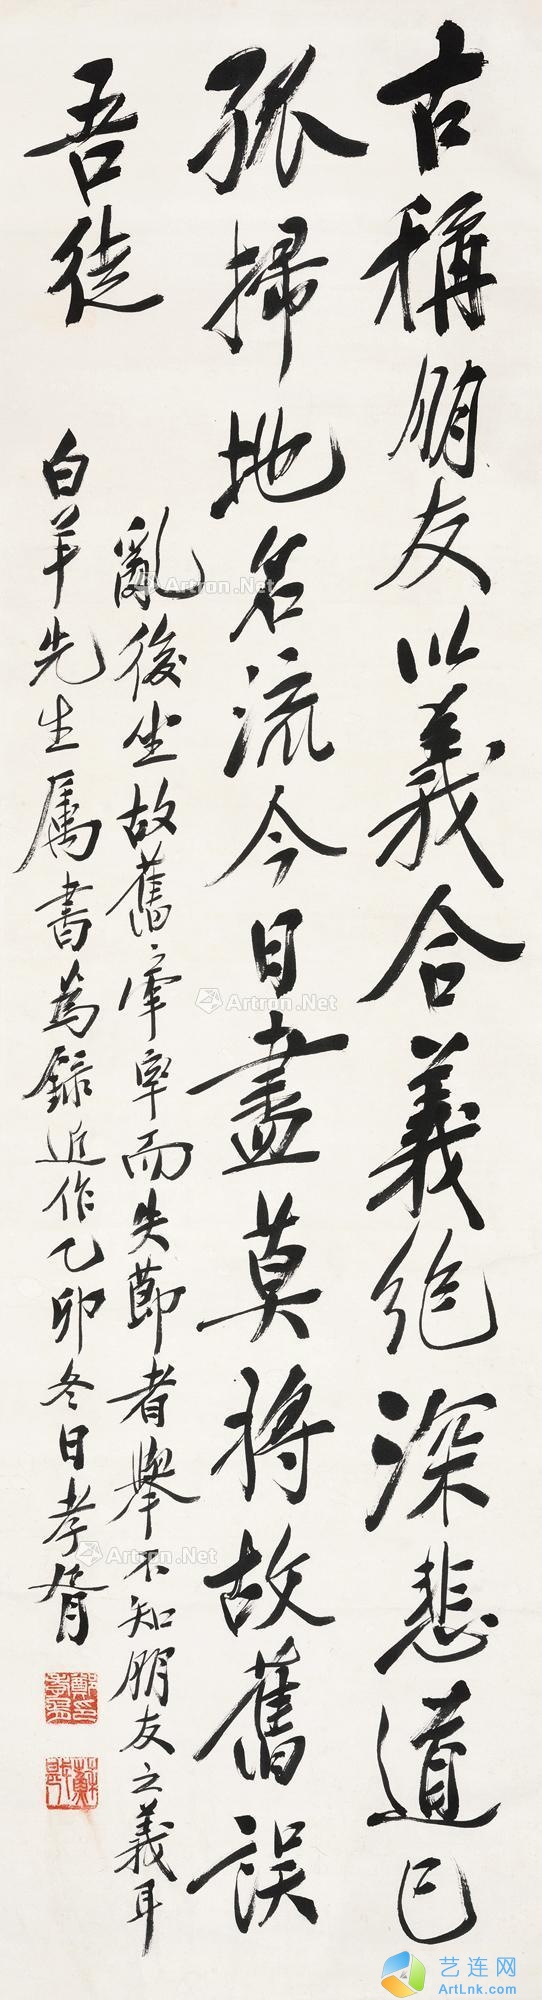 古稱朋友以義合義絶深悲道已
孤掃地名流今日盡莫將故舊誤
吾徒
亂後坐故舊牽率而失節者舉不知朋友之義耳
白羊先生屬書爲錄近作乙卯冬日孝胥
鄭孝胥印
蘇戡
Artron.Net
Artron.Net
Artron.Net
艺连网
ArtLnk.com